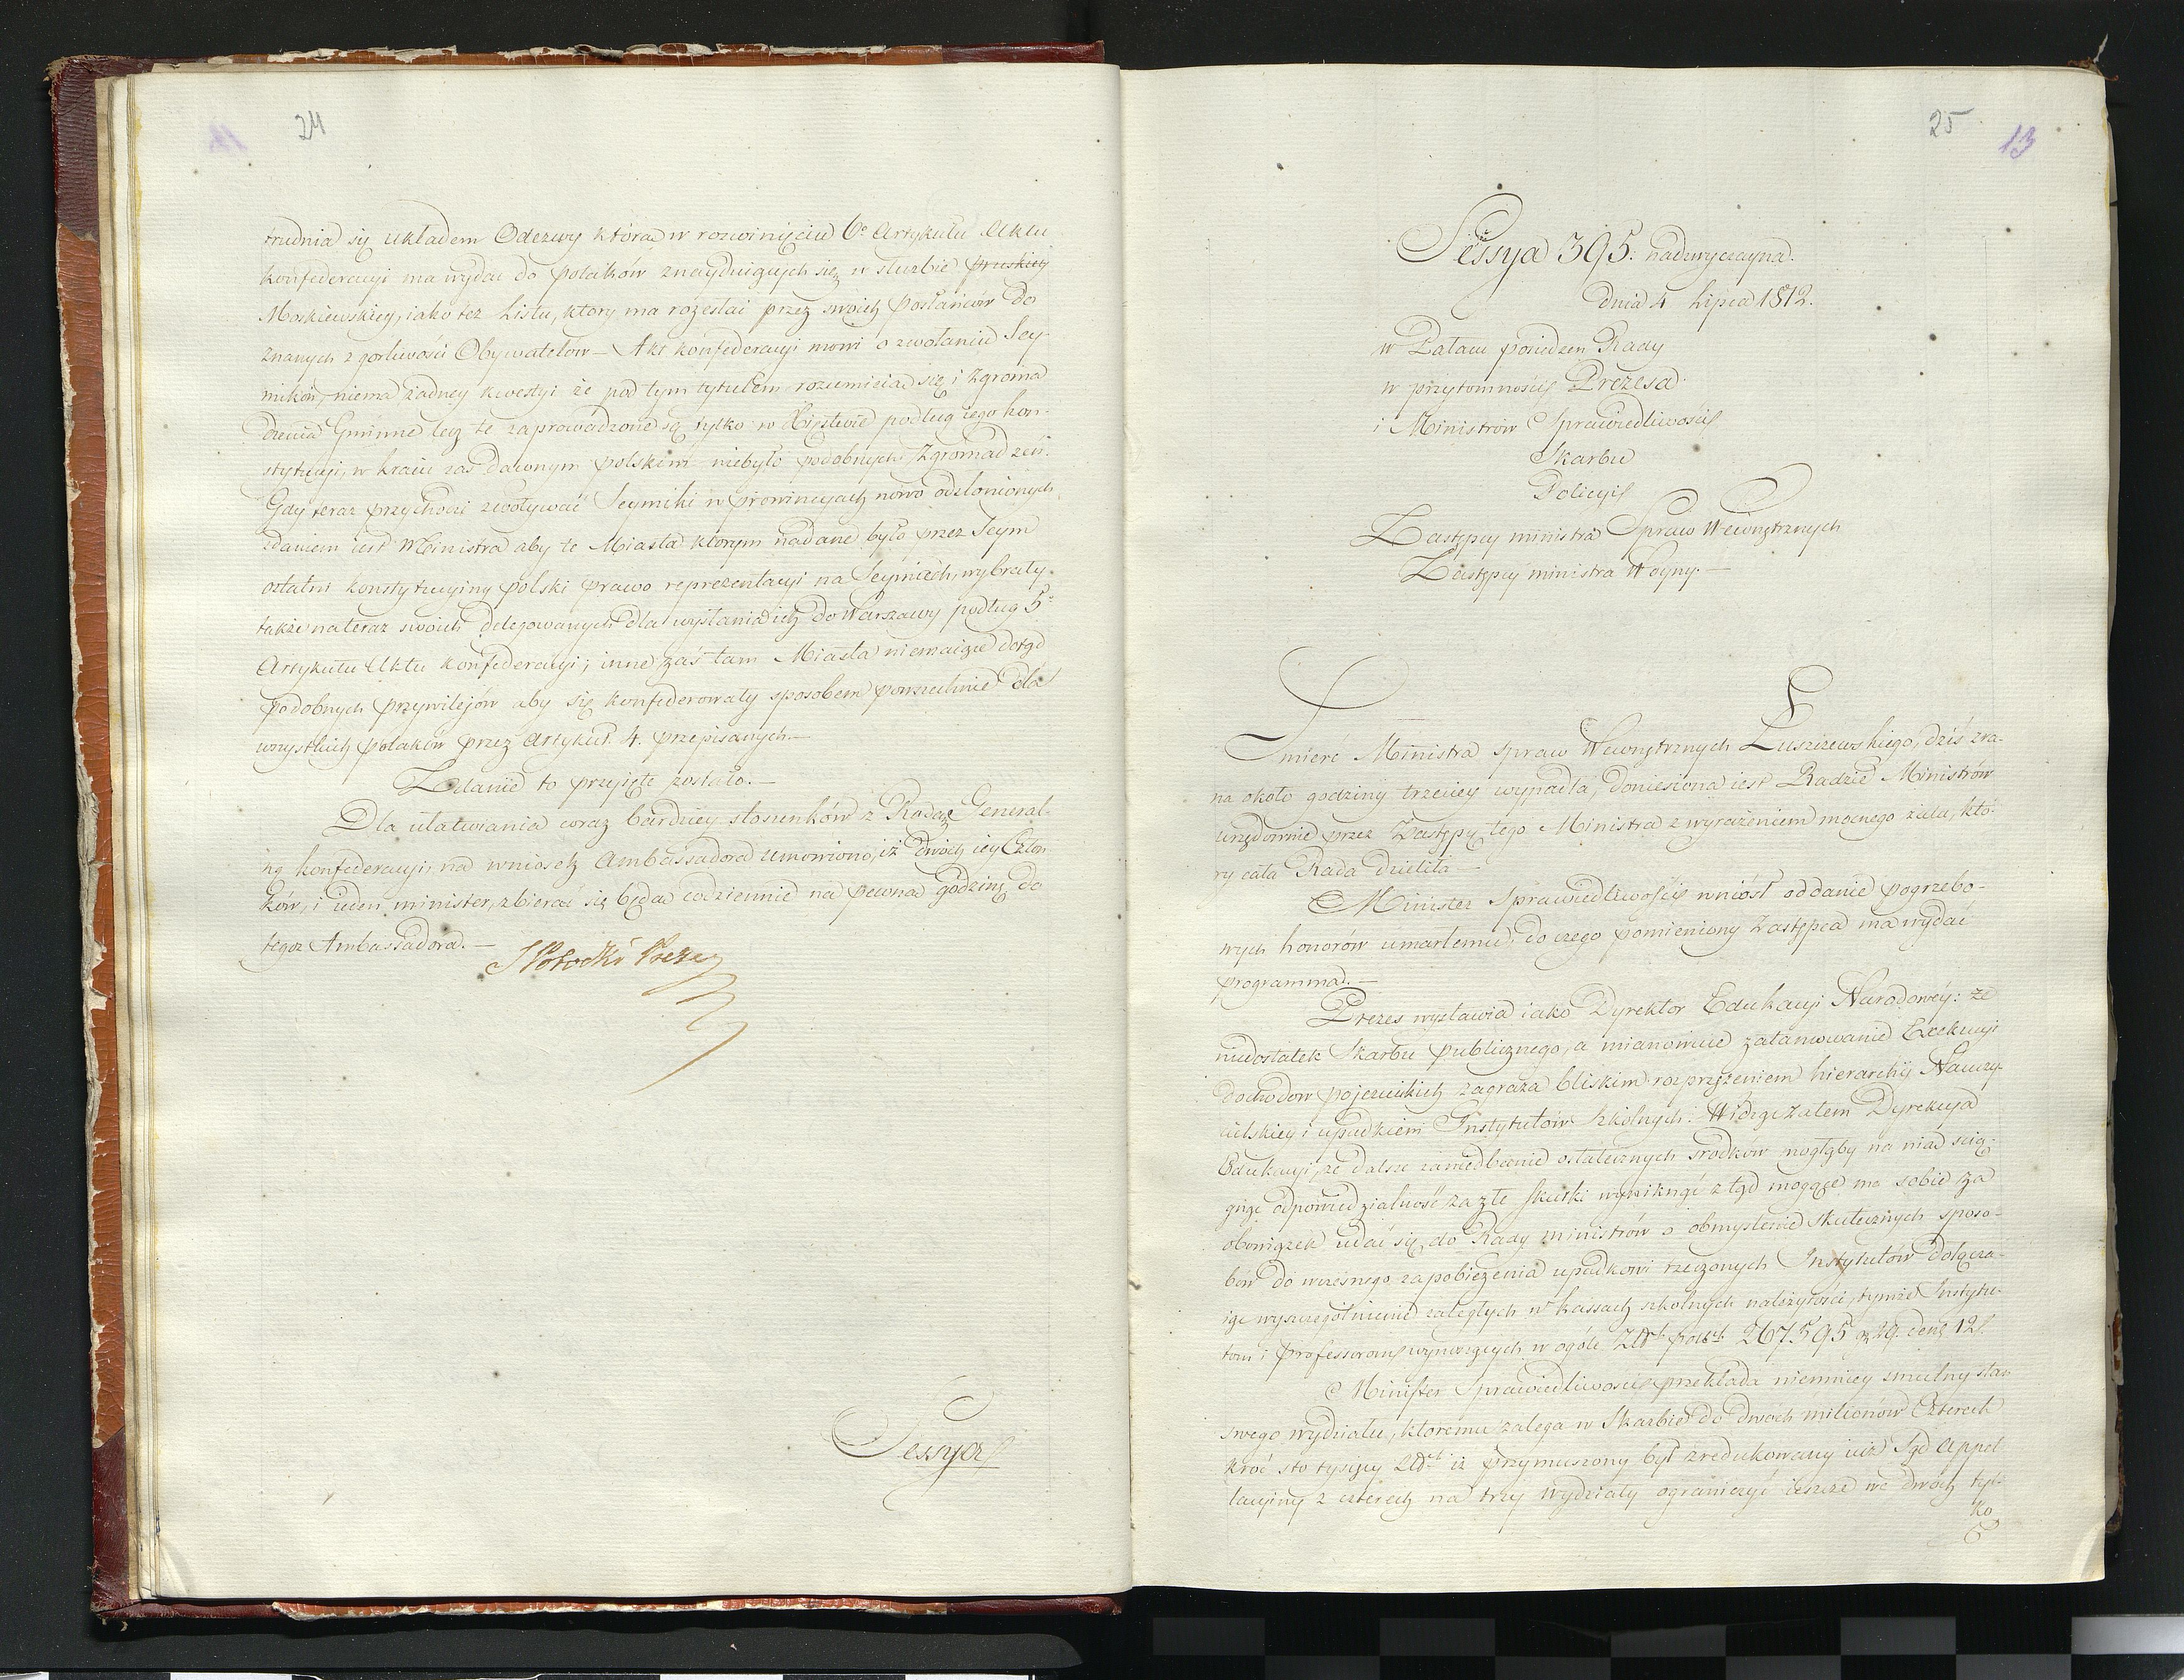 24
trudnia się układem Odezwy która w rozwinięciu 6º Artykułu Aktu
konfederacyi ma wydać do polaków znayduiących się w służbie pruskiey
Moskiewskiey, iako też Listu, ktory ma rozesłać przez swoich posłańców do
znanych z gorliwości Obywatelów – Akt konfederacyi mowi o zwołaniu Sey-
mików, niema żadney kwestyi że pod tym tytułem rozumieia się i Zgroma
dzenia Gminne lecz te zaprowadzone są tylko w Xięstwie podług iego kon-
stytucyi, w kraiu zas dawnym polskim niebyło podobnych Zgromadzeń.
Gdy teraz przychodzi zwoływać Seymiki w prowincyach nowo odzłonionych
zdaniem iest Ministra aby te Miasta ktorym nadane było przez Seym
ostatni konstytucyiny polski prawo reprezentacyi na Seymiech, wybrały
także nateraz swoich delegowanych dla wysłania ich do Warszawy podług 5º
Artykułu Aktu konfederacyi; inne zaś tam Miasta niemaiące dotąd
podobnych przywilejów aby się konfederowały sposobem powszechnie dla
wszystkich polaków przez Artykuł 4. przepisanych. –
Zdanie to przyięte zostało. –
Dla ułatwiania coraz bardziey stosunków z Radą General-
ną konfederacyi, na wniosek Ambassadora umowiono, iż dwóch iey Człon
ków, i ieden minister, zbierać się będą codziennie na pewną godzinę do
tegoz Ambassadora. –
S Potocki Prezes
Sessya
25
13
Sessya 395. nadzwyczayna.
dnia 4 Lipca 1812.
w Pałacu posiedzen Rady
w przytomności Prezesa
i Ministrów Sprawiedliwości
Skarbu
Policyi
Zastępcy ministra Spraw Wewnętrznych
Zastępcy ministra Woyny. –
Smierć Ministra spraw Wewnętrznych Łuszczewskiego, dziś zra-
na około godziny trzeciey wypadła, doniesiona iest Radzie Ministrów
urzędownie przez Zastępcę tego Ministra z wyrażeniem mocnego żalu, któ-
ry cała Rada dzieliła –
Minister Sprawiedliwości wniósł oddanie pogrzebo-
wych honorów umarłemu, do czego pomieniony Zastępca ma wydać
programma. –
Prezes wystawia iako Dyrektor Edukacyi Narodowéy: że
niedostatek Skarbu publicznego, a mianowicie zatamowanie Exekucyi
dochodow pojezuickich zagraża bliskim rozprzężeniem hierarchij Nauczy-
cielskiey i upadkiem Instytutów Szkolnych. Widząc zatem Dyrekcya
Edukacyi, ze dalsze zaniedbanie ostatecznych srodków mogłoby na nią scią-
gnąć odpowiedzialność za złe skutki wyniknąć ztąd mogące ma sobie za
obowiązek udać się do Rady ministrów o obmyslenie skutecznych sposo-
bow do wczesnego zapobieżenia upadkowi rzeczonych Instytutów dołącza-
iąc wyszczególnienie zaległych w kassach szkolnych należytości, tymże Instytu-
tom i professorom wynoszących w ogóle Złt polskich 267.595 gr 29. den 12/.
Minister Sprawiedliwości przekłada niemniey smutny stan
swego wydziału, ktoremu zalega w Skarbie do dwoch milionow Czterech
kroć sto tysięcy Złt iż przymuszony był zredukowany iuż Sąd Appel-
lacyiny z czterech na trzy wydziały ograniczyć ieszcze we dwóch tyl-
ko